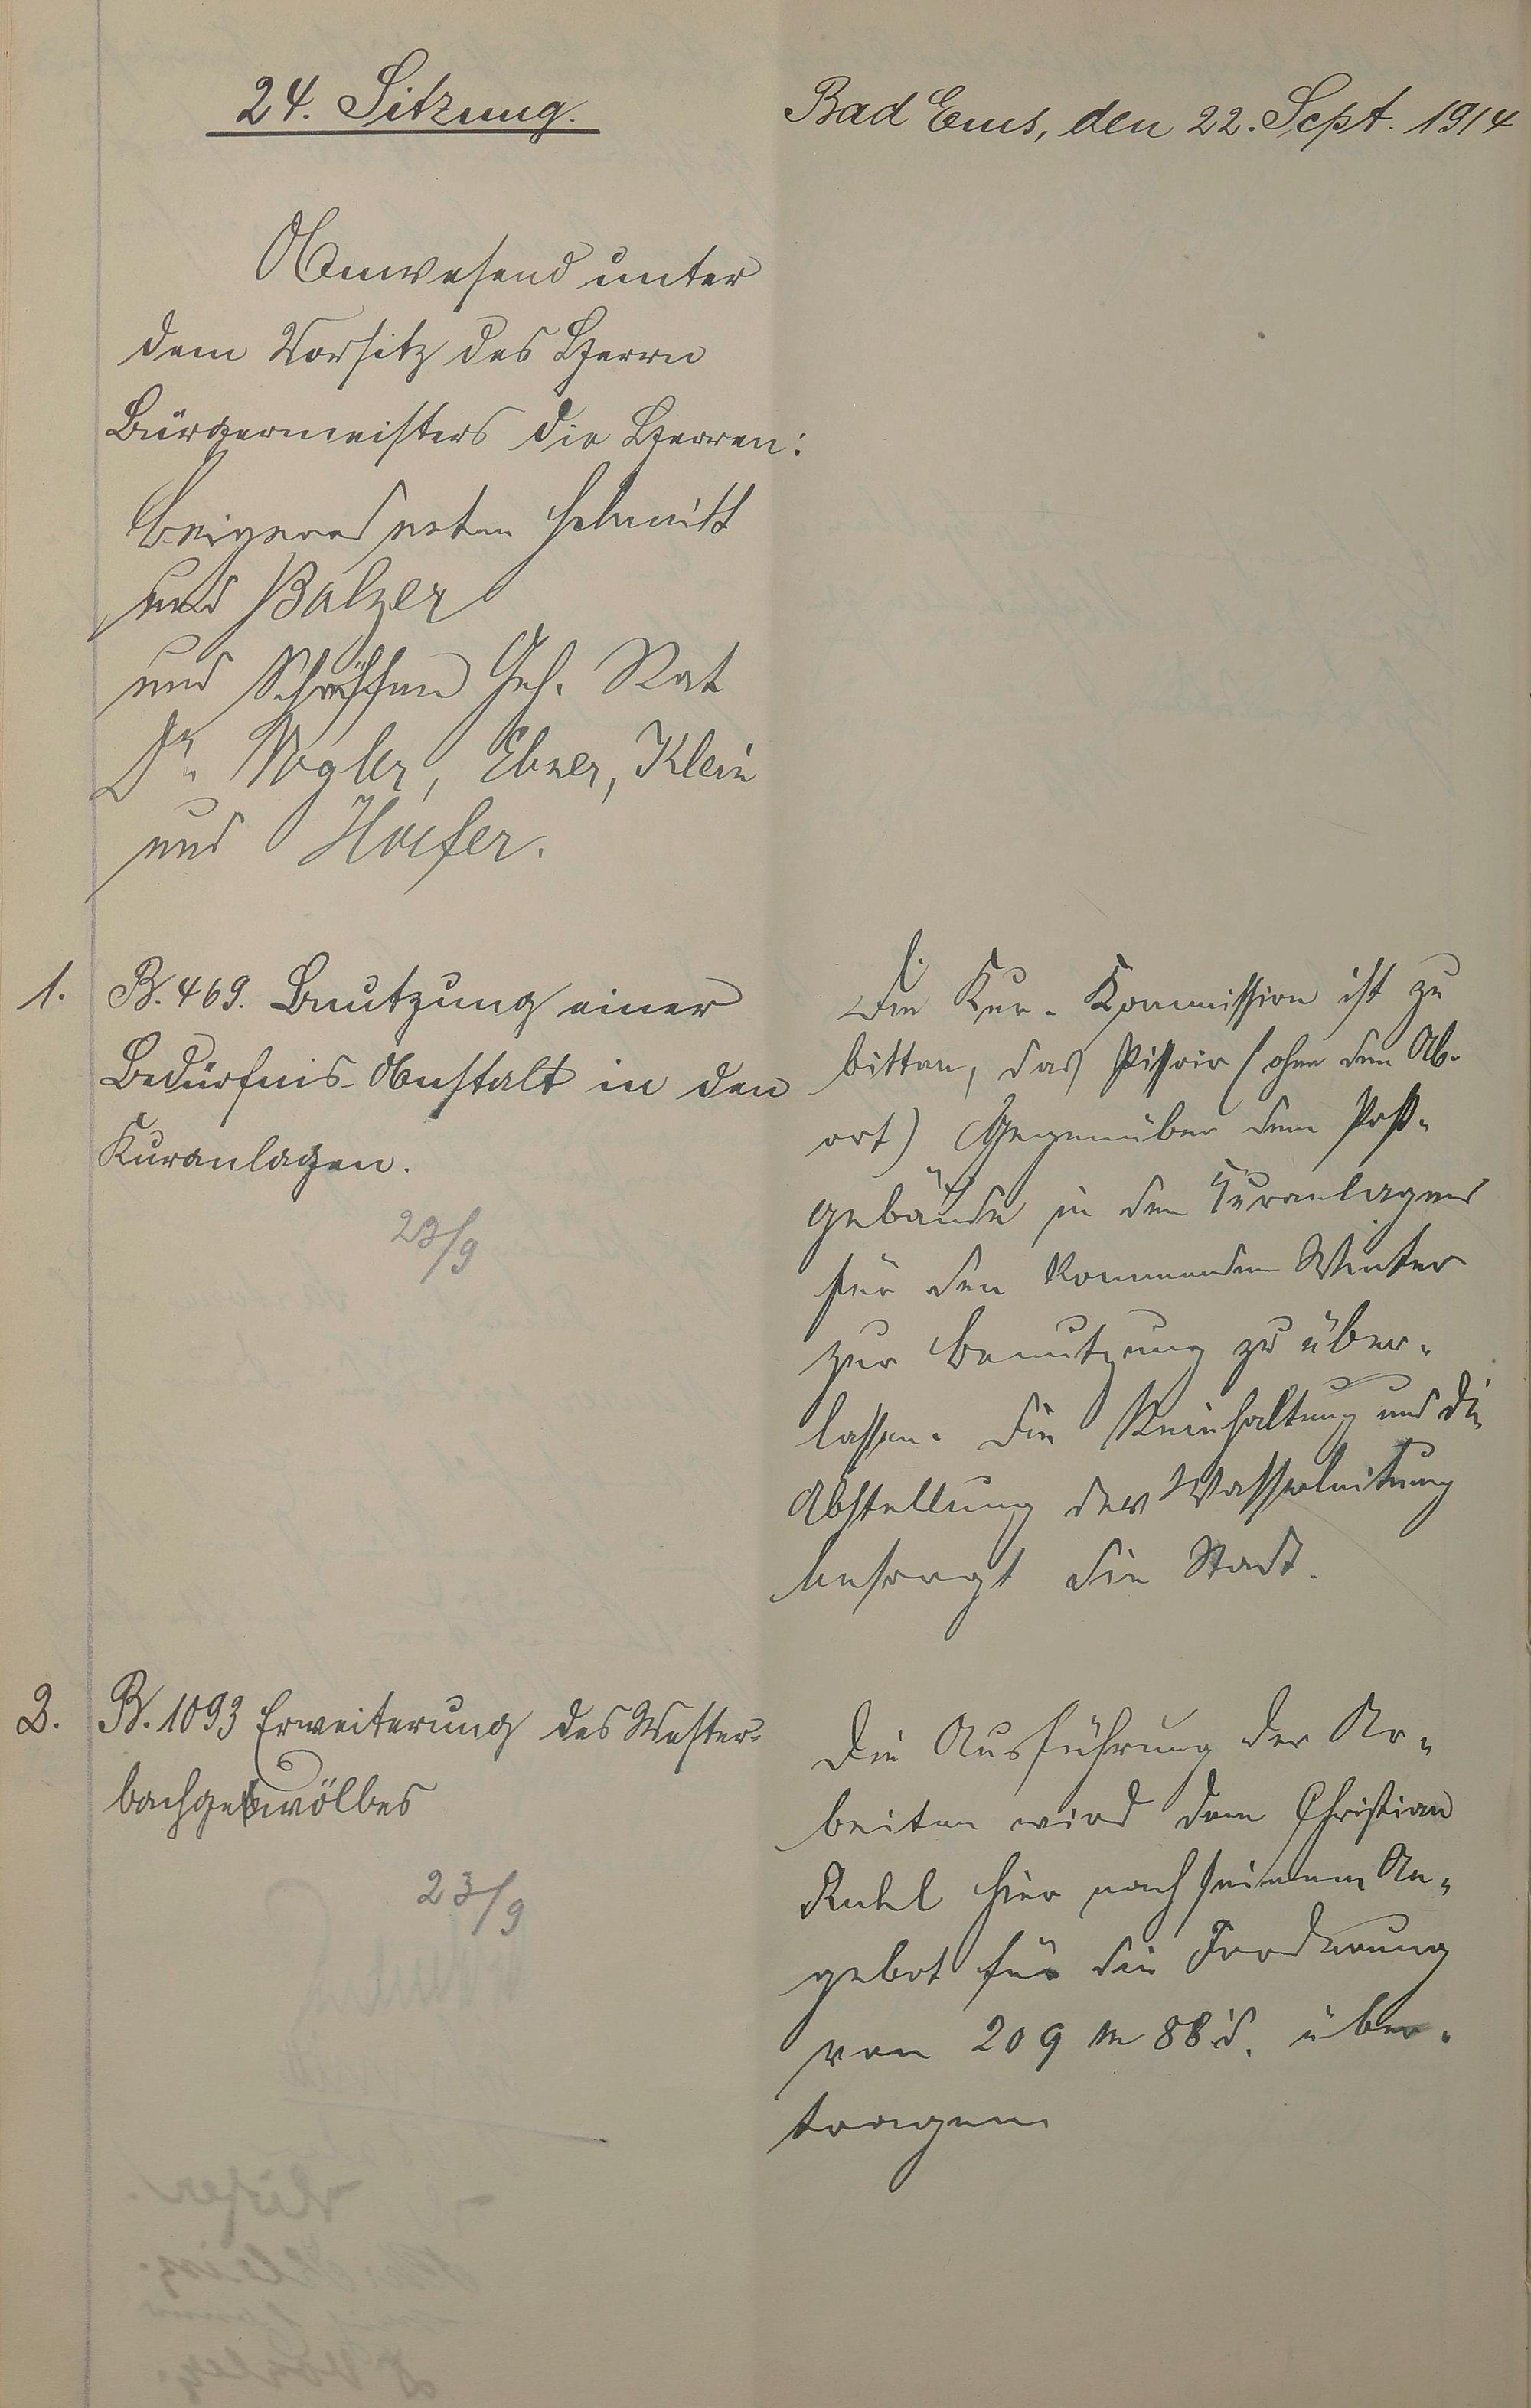 24. Sitzung.
Bad Ems, den 22. Sept. 1914
Anwesend unter
dem Vorsitz des Herrn
Bürgermeisters die Herren:
Beigeordneten Schmitt
und Balzer
und Schöffen Geh. Rat
Dr. Vogler, Ebner, Klein
und Höfer.
1. B. 469. Benutzung einer
Bedürfnis-Anstalt in den
Kuranlagen.
23/9
Die Kur-Kommission ist zu
bitten, das Pissoir (ohne den Ab-
ort) Gegenüber dem Post-
gebäude in den Kuranlagen
für den kommenden Winter
zur Benutzung zu über-
lassen. Die Reinhaltung und die
Abstellung der Wasserleitung
besorgt die Stadt.
2. B. 1093 Erweiterung des Wester-
bachgewölbes
23/9
Die Ausführung der Ar-
beiten wird dem Christian
hier nach seinem An-
gebot für die Forderung
von 209 M 88 d. über-
tragen